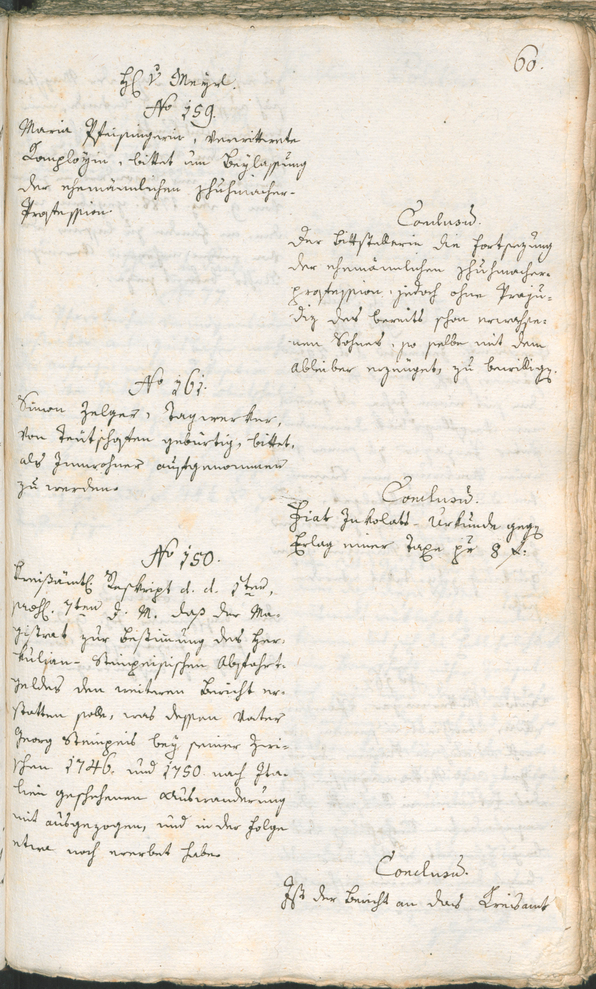 60.
H. v. Meyrl.
No 159.
Maria Pfeisingerin, verwittwete
Comployin, bittet um Beylassung
der ehemännlichen Schuhmacher-
Profession.
Conclusum.
Der Bittstellerin die Fortsezung
der ehemännlichen Schuhmacher-
profession, jedoch ohne Präju-
diz des bereits schon erwachse-
nen Sohnes, so selbe mit dem
Ableiber erzeuget, zu bewilligen.
No 161.
Simon Zelger, Tagwerker,
von Teutschofen gebürtig, bittet,
als Innwohner aufgenommen
zu werden.
Conclusum.
Fiat Inkolats-Urkunde gegen
Erlag einer Taxe pr 8 f.
No 150.
Kreisämtl. Reskript d. d. 1ten,
praes. 7ten d. M. daß der Ma-
gistrat zur Bestimmung des Her-
kulian-Steinpeisischen Abfahrt-
geldes den weiteren Bericht er-
statten solle, was dessen Vater
Georg Steinpeis bey seiner zwi-
schen 1746. und 1750 nach Ita-
lien geschehenen Auswanderung
mit ausgezogen, und in der Folge
etwa noch ererbet habe.
Conclusum.
Ist der Bericht an das Kreisamt